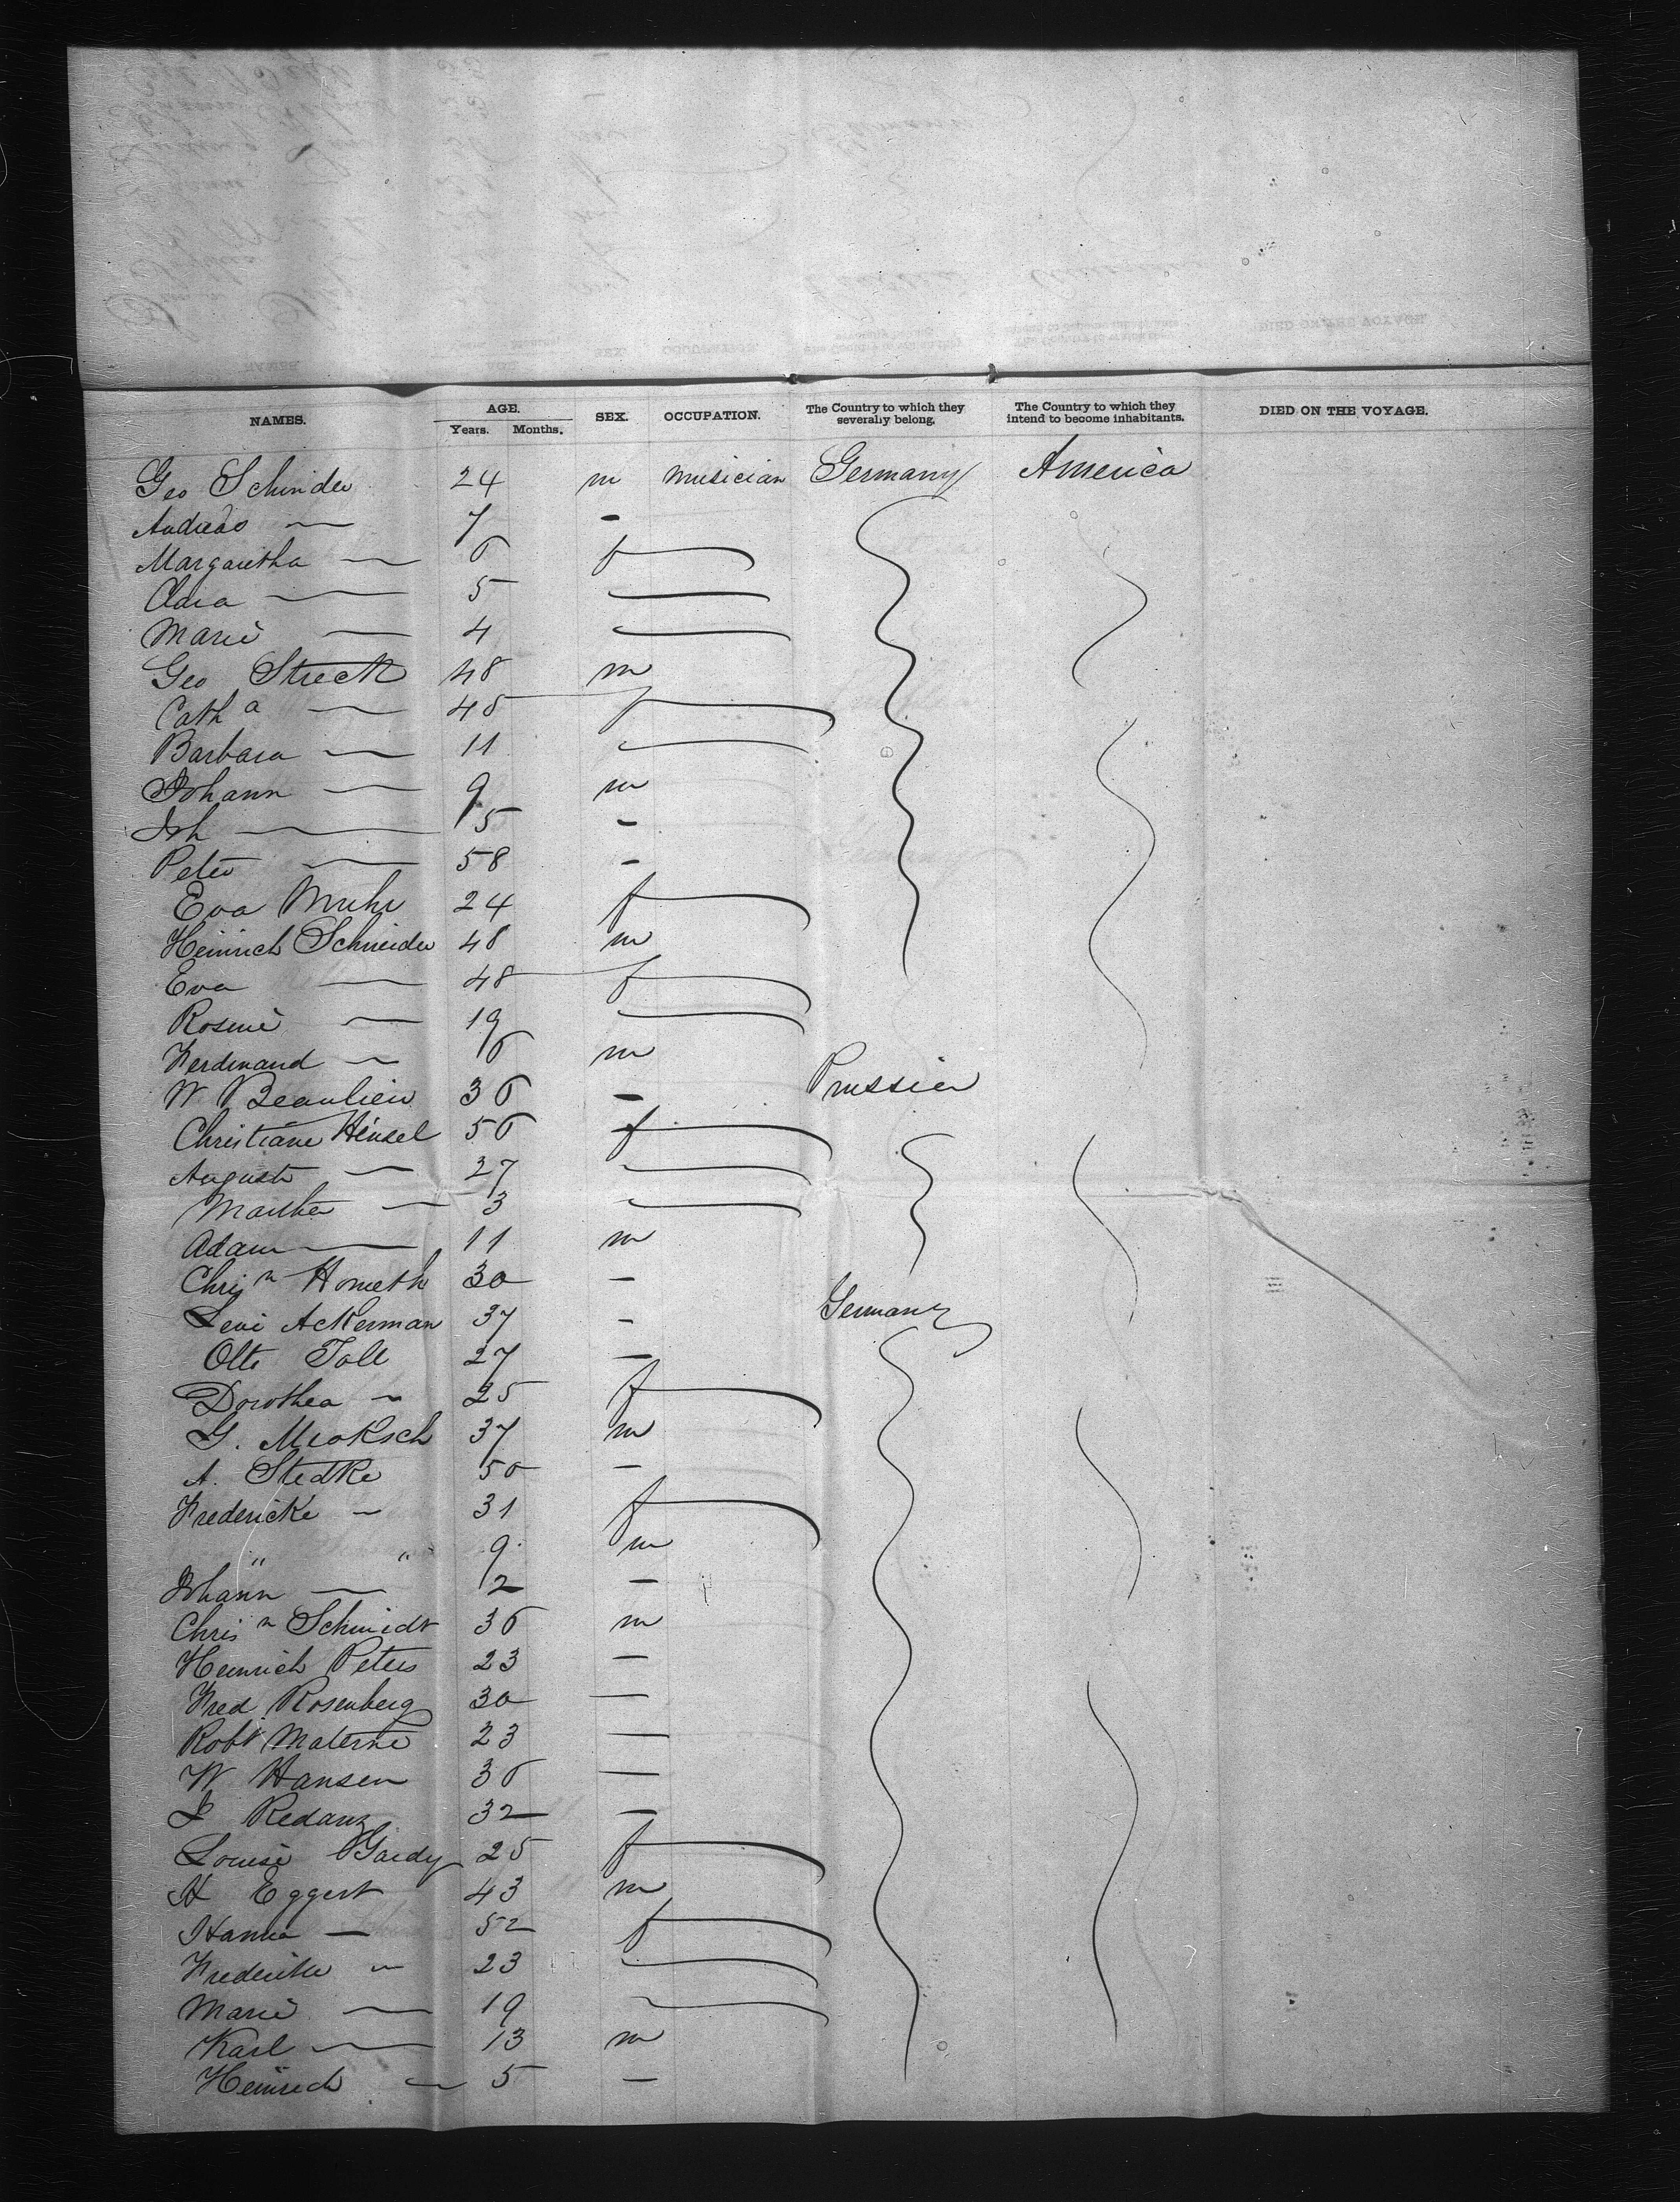 NAMES. AGE. Years. Months. SEX. OCCUPATION. The Country to which they severally belong. The Country to which they intend to become inhabitants. DIED ON THE VOYAGE.
Geo Schinder 24 m musician Germany America
Andreas — 7 —
Margaretha — 6 f
Clara — 5
Marie — 4
Geo Streck 48 m
Cath a — 48 f
Barbara — 11
Johann — 9 m
Joh — 5 —
Peter — 58 —
Eva Muhr 24 f
Heinrich Schneider 48 m
Eva — 48 f
Rosine — 19
Ferdinand — 6 m
W Beaulieu 36 — Prussia
Christiane Hensel 56 f
Auguste — 27
Martha — 3
Adam — 11 m
Chris n Hometh 30 —
Levi Ackerman 37 — Germany
Otto Toll 27 —
Dorothea — 25 f
G. 37 m
A. Stedke 50 —
Fredericke — 31 f
" " 9 m
Johann — 2 —
Chris n Schmidt 36 m
Heinrich Peters 23 —
Fred Rosenberg 30 —
Robt Materne 23 —
W Hansen 36 —
J Redanz 32 —
Louise Gardy 25 f
H Eggert 43 m
Hanna — 52 f
Frederike — 23
Marie — 19
Karl — 13 m
Heinrich — 5 —